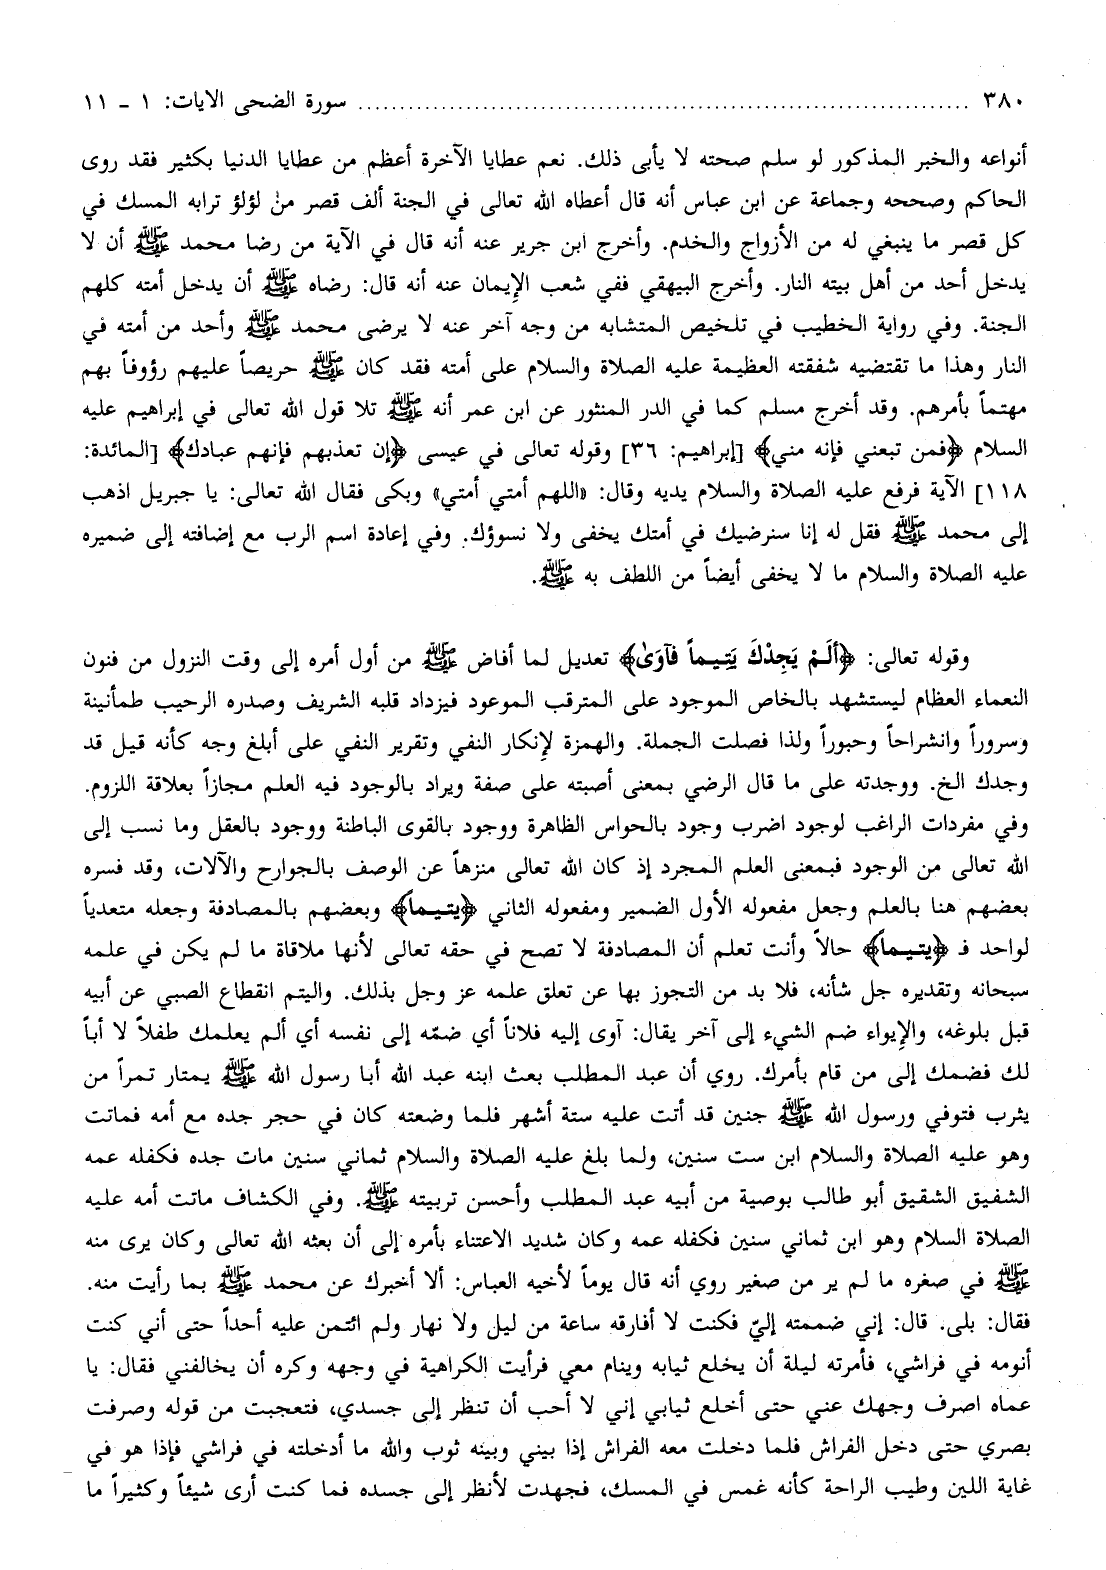 ٣٨٠ ........................................................................ سورة الضحى الايات: ١ ـ ١١
أنواعه والخبر المذكور لو سلم صحته لا يأبى ذلك. نعم عطايا الآخرة أعظم من عطايا الدنيا بكثير فقد روى
الحاكم وصححه وجماعة عن ابن عباس أنه قال أعطاه الله تعالى في الجنة ألف قصر من لؤلؤ ترابه المسك في
كل قصر ما ينبغي له من الأزواج والخدم. وأخرج ابن جرير عنه أنه قال في الآية من رضا محمد ﷺ أن لا
يدخل أحد من أهل بيته النار. وأخرج البيهقي ففي شعب الإيمان عنه أنه قال: رضاه ﷺ أن يدخل أمته كلهم
الجنة. وفي رواية الخطيب في تلخيص المتشابه من وجه آخر عنه لا يرضى محمد ﷺ وأحد من أمته في
النار وهذا ما تقتضيه شفقته العظيمة عليه الصلاة والسلام على أمته فقد كان ﷺ حريصاً عليهم رؤوفاً بهم
مهتماً بأمرهم. وقد أخرج مسلم كما في الدر المنثور عن ابن عمر أنه ﷺ تلا قول الله تعالى في إبراهيم عليه
السلام ﴿فمن تبعني فإنه مني﴾ [إبراهيم: ٣٦] وقوله تعالى في عيسى ﴿إن تعذبهم فإنهم عبادك﴾ [المائدة:
١١٨] الآية فرفع عليه الصلاة والسلام يديه وقال: «اللهم أمتي أمتي» وبكى فقال الله تعالى: يا جبريل اذهب
إلى محمد ﷺ فقل له إنا سنرضيك في أمتك يخفى ولا نسوؤك. وفي إعادة اسم الرب مع إضافته إلى ضميره
عليه الصلاة والسلام ما لا يخفى أيضاً من اللطف به ﷺ.
وقوله تعالى: ﴿أَلَمْ يَجِدْكَ يَتِيماً فَآوَىٰ﴾ تعديل لما أفاض ﷺ من أول أمره إلى وقت النزول من فنون
النعماء العظام ليستشهد بالخاص الموجود على المترقب الموعود فيزداد قلبه الشريف وصدره الرحيب طمأنينة
وسروراً وانشراحاً وحبوراً ولذا فصلت الجملة. والهمزة لإنكار النفي وتقرير النفي على أبلغ وجه كأنه قيل قد
وجدك الخ. ووجدته على ما قال الرضي بمعنى أصبته على صفة ويراد بالوجود فيه العلم مجازاً بعلاقة اللزوم.
وفي مفردات الراغب لوجود اضرب وجود بالحواس الظاهرة ووجود بالقوى الباطنة ووجود بالعقل وما نسب إلى
الله تعالى من الوجود فبمعنى العلم المجرد إذ كان الله تعالى منزهاً عن الوصف بالجوارح والآلات، وقد فسره
بعضهم هنا بالعلم وجعل مفعوله الأول الضمير ومفعوله الثاني ﴿يتيماً﴾ وبعضهم بالمصادفة وجعله متعدياً
لواحد فـ ﴿يتيماً﴾ حالاً وأنت تعلم أن المصادفة لا تصح في حقه تعالى لأنها ملاقاة ما لم يكن في علمه
سبحانه وتقديره جل شأنه، فلا بد من التجوز بها عن تعلق علمه عز وجل بذلك. واليتم انقطاع الصبي عن أبيه
قبل بلوغه، والإيواء ضم الشيء إلى آخر يقال: آوى إليه فلاناً أي ضمّه إلى نفسه أي ألم يعلمك طفلاً لا أباً
لك فضمك إلى من قام بأمرك. روي أن عبد المطلب بعث ابنه عبد الله أبا رسول الله ﷺ يمتار تمراً من
يثرب فتوفي ورسول الله ﷺ جنين قد أتت عليه ستة أشهر فلما وضعته كان في حجر جده مع أمه فماتت
وهو عليه الصلاة والسلام ابن ست سنين، ولما بلغ عليه الصلاة والسلام ثماني سنين مات جده فكفله عمه
الشفيق الشقيق أبو طالب بوصية من أبيه عبد المطلب وأحسن تربيته ﷺ. وفي الكشاف ماتت أمه عليه
الصلاة السلام وهو ابن ثماني سنين فكفله عمه وكان شديد الاعتناء بأمره إلى أن بعثه الله تعالى وكان يرى منه
ﷺ في صغره ما لم ير من صغير روي أنه قال يوماً لأخيه العباس: ألا أخبرك عن محمد ﷺ بما رأيت منه.
فقال: بلى. قال: إني ضممته إليّ فكنت لا أفارقه ساعة من ليل ولا نهار ولم ائتمن عليه أحداً حتى أني كنت
أنومه في فراشي، فأمرته ليلة أن يخلع ثيابه وينام معي فرأيت الكراهية في وجهه وكره أن يخالفني فقال: يا
عماه اصرف وجهك عني حتى أخلع ثيابي إني لا أحب أن تنظر إلى جسدي، فتعجبت من قوله وصرفت
بصري حتى دخل الفراش فلما دخلت معه الفراش إذا بيني وبينه ثوب والله ما أدخلته في فراشي فإذا هو في
غاية اللين وطيب الراحة كأنه غمس في المسك، فجهدت لأنظر إلى جسده فما كنت أرى شيئاً وكثيراً ما